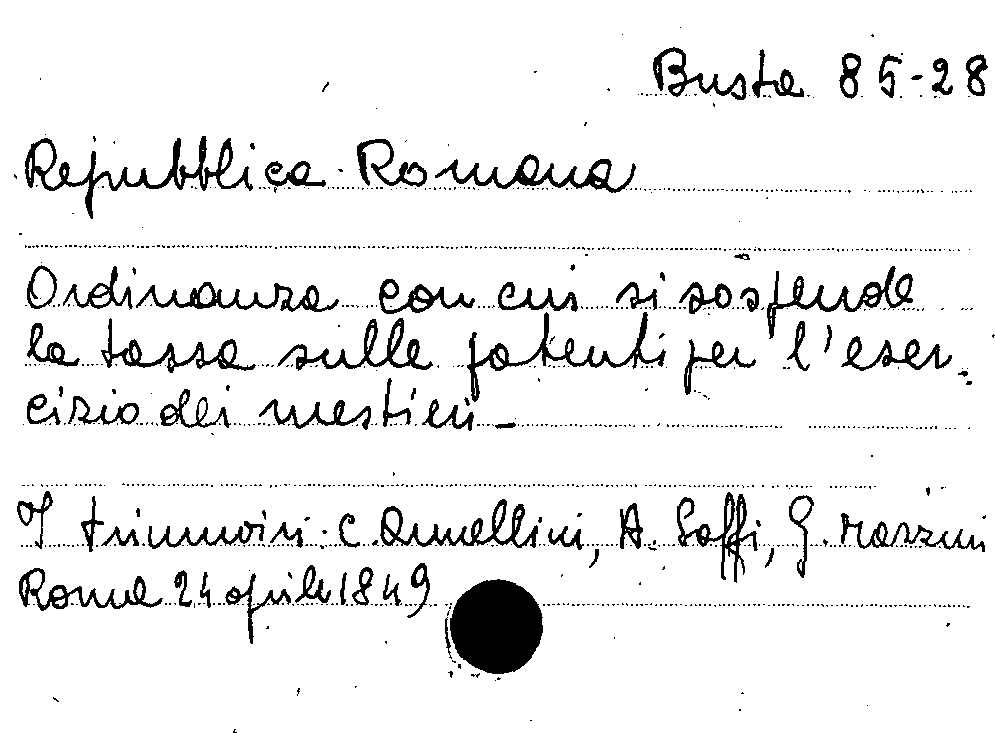 Busta 85-28
Repubblica Romana
Ordinanza con cui si sospende
la tassa sulle patenti per l'eser-
cizio dei mestieri_
I triumviri: C. Armellini, A. Saffi, G. Mazzini
Roma 24 aprile 1849